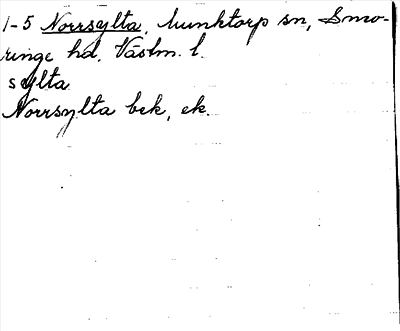 1-5 Norrsylta, Munktorp sn, Snno-
ringe hd, Västm. l.
sylta
Norrsylta bek, ek.